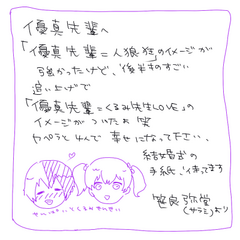 優真先輩へ
「優真先輩=人狼狂」のイメージが
強かったけど、後半ものすごい
追い上げで
「優真先輩=くるみ先生LOVE」の
イメージがついたよ笑
んで 幸せになって下さい、
結婚式の
手紙、待ってます
より
せんぱいとくるみせんせい